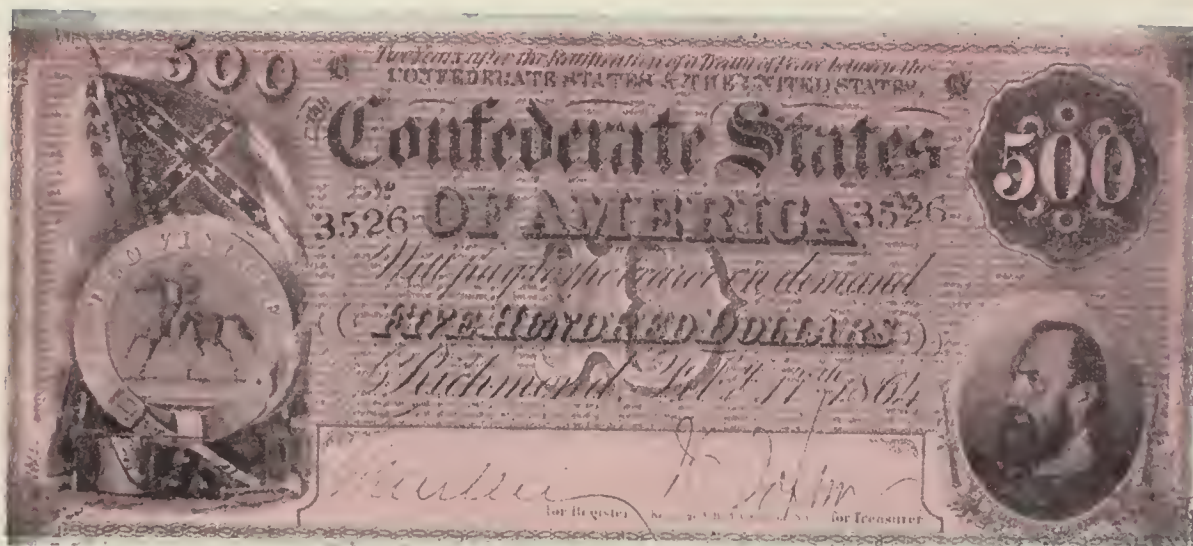 500
Two Years after the Ratification of a Treaty of Peace between the
CONFEDERATE STATES & THE UNITED STATES,
Confederate States
500
No
No
3526 OF AMERICA 3526
Will pay to the bearer on demand
FIVE HUNDRED DOLLARS
Richmond, Feb. 17th 1864
for Register
for Treasurer